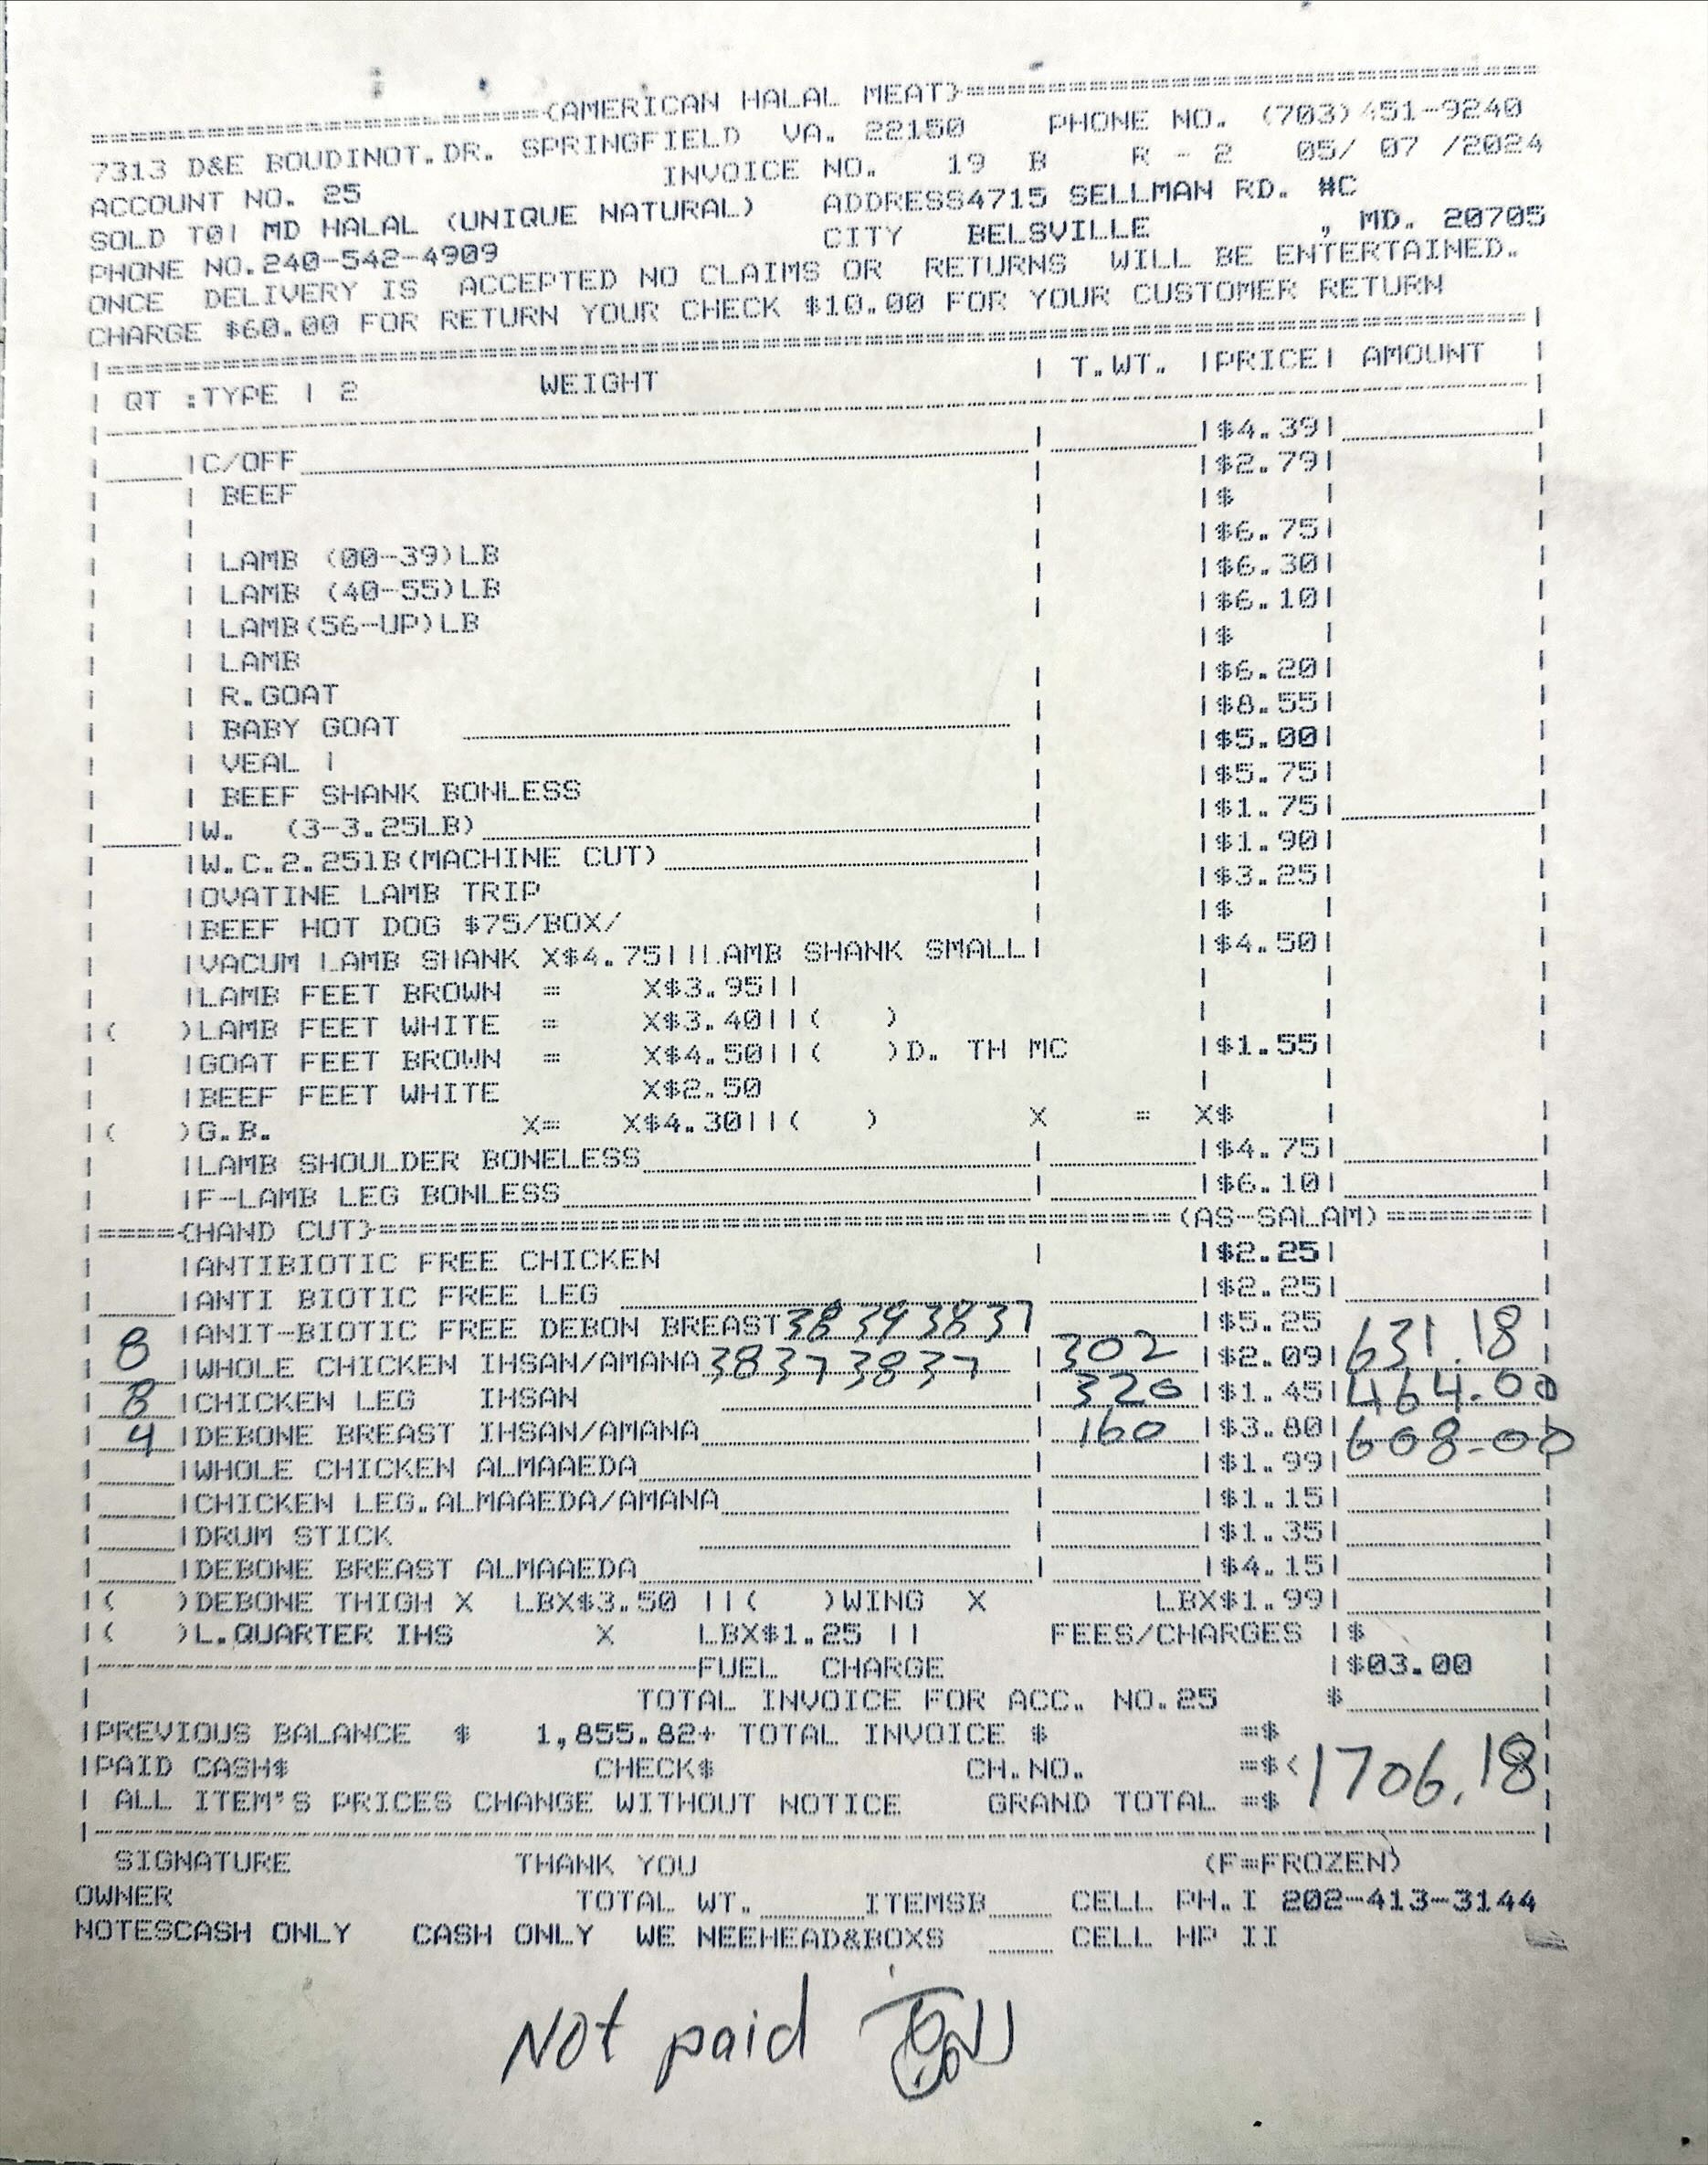 =={AMERICAN HALAL MEAT}==
7313 D&E BOUDINOT.DR. SPRINGFIELD VA. 22150 PHONE NO. (703)451-9240
INVOICE NO. 19 B R - 2 05/ 07 /2024
ACCOUNT NO. 25 ADDRESS4715 SELLMAN RD. #C
SOLD TO| MD HALAL (UNIQUE NATURAL) CITY BELSVILLE , MD. 20705
PHONE NO.240-542-4909
ONCE DELIVERY IS ACCEPTED NO CLAIMS OR RETURNS WILL BE ENTERTAINED.
CHARGE $60.00 FOR RETURN YOUR CHECK $10.00 FOR YOUR CUSTOMER RETURN
| QT :TYPE | 2 WEIGHT | T.WT. |PRICE| AMOUNT |
|C/OFF |$4.39|
| BEEF |$2.79|
|$ |
| LAMB (00-39)LB |$6.75|
| LAMB (40-55)LB |$6.30|
| LAMB(56-UP)LB |$6.10|
| LAMB |$ |
| R.GOAT |$6.20|
| BABY GOAT |$8.55|
| VEAL | |$5.00|
| BEEF SHANK BONLESS |$5.75|
|W. (3-3.25LB) |$1.75|
|W.C.2.25lB(MACHINE CUT) |$1.90|
|OVATINE LAMB TRIP |$3.25|
|BEEF HOT DOG $75/BOX/ |$ |
|VACUM LAMB SHANK X$4.75||LAMB SHANK SMALL| |$4.50|
|LAMB FEET BROWN = X$3.95||
|( )LAMB FEET WHITE = X$3.40||( )
|GOAT FEET BROWN = X$4.50||( )D. TH MC |$1.55|
|BEEF FEET WHITE X$2.50
|( )G.B. X= X$4.30||( ) X = X$ |
|LAMB SHOULDER BONELESS |$4.75|
|F-LAMB LEG BONLESS |$6.10|
|===={HAND CUT}==(AS-SALAM)=======|
|ANTIBIOTIC FREE CHICKEN |$2.25|
|ANTI BIOTIC FREE LEG |$2.25|
|ANIT-BIOTIC FREE DEBON BREAST 38 39 38 37 |$5.25
8 |WHOLE CHICKEN IHSAN/AMANA 38 37 38 37 | 302 |$2.09| 631.18
8 |CHICKEN LEG IHSAN | 320 |$1.45| 464.00
4 |DEBONE BREAST IHSAN/AMANA | 160 |$3.80| 608-00
|WHOLE CHICKEN ALMAAEDA |$1.99|
|CHICKEN LEG.ALMAAEDA/AMANA |$1.15|
|DRUM STICK |$1.35|
|DEBONE BREAST ALMAAEDA |$4.15|
|( )DEBONE THIGH X LBX$3.50 ||( )WING X LBX$1.99|
|( )L.QUARTER IHS X LBX$1.25 || FEES/CHARGES |$
FUEL CHARGE |$03.00
TOTAL INVOICE FOR ACC. NO.25 $
|PREVIOUS BALANCE $ 1,855.82+ TOTAL INVOICE $ =$
|PAID CASH$ CHECK$ CH.NO. =$< 1706.18
| ALL ITEM'S PRICES CHANGE WITHOUT NOTICE GRAND TOTAL =$
SIGNATURE THANK YOU (F=FROZEN)
OWNER TOTAL WT. ITEMSB CELL PH.I 202-413-3144
NOTESCASH ONLY CASH ONLY WE NEEHEAD&BOXS CELL HP II
Not paid